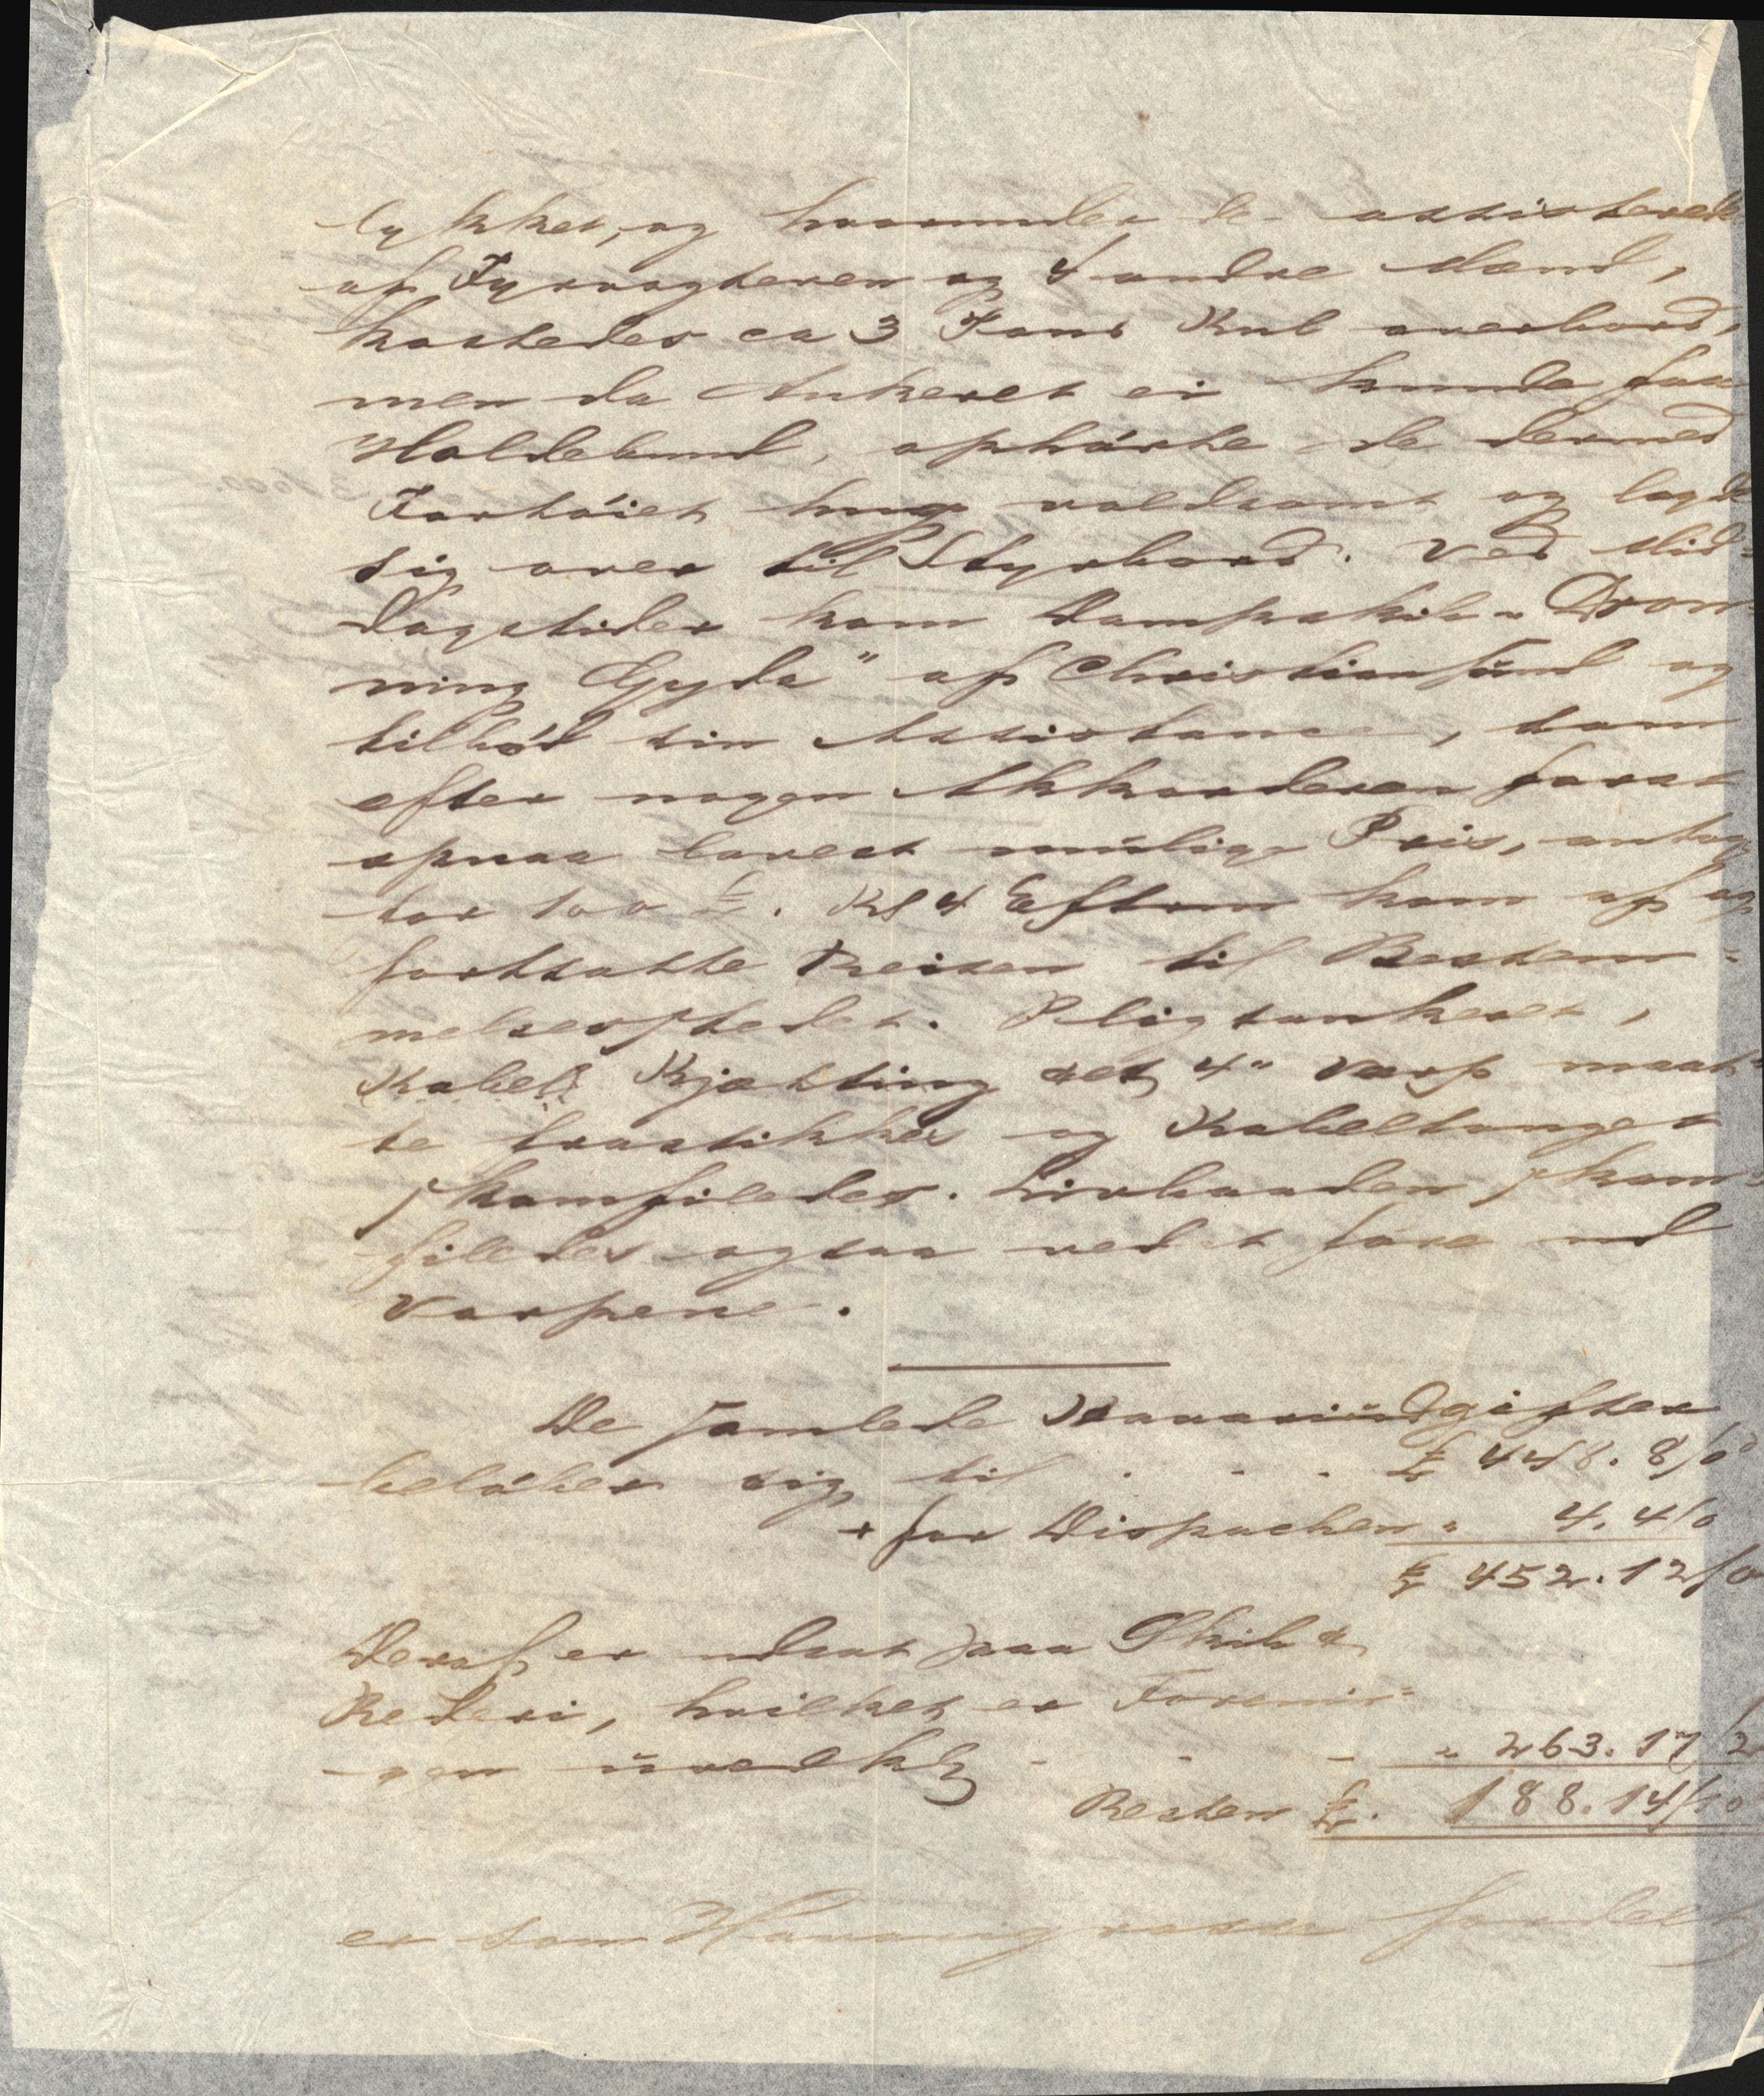 lykket, og hvorunder de assisteredes
af Fyrvogteren og 4 andre Mænd,
kastedes ca 3 Tons Kul overbord,
men da Ankeret ei kunde faa
Holdebund, ophørte de dermed
Fartøiet hug voldsomt og lagde
sig over til Styrbord. Ved Mid-
dagstider kom Dampskib „Dron-
ning Gyda" af Christiansund og
tilbød sin Assistance, som
efter nogen Akkorderen forat
opnaa lavest mulige Pris, antoges
for 100 £. Kl 4 Efterm kom af og
fortsatte Reisen til Bestem=
melsesstedet. Pligtankeret,
Kabel Kjætting 4" Varp maat-
te og Kabeltouget
skamfiledes. Livbaaden skam-
filedes ogsaa ved at føre ud
Varpene.
De samlede Havariudgifter
beløber sig til . . . £ 448. 8/0
+ for Dispachen " 4. 4/0
£ 452. 12/0
Deraf er udsat paa Skib &
Rederi, hvilket er Forenin=
gen uvedk - - - " 263. 17/2
Resten £. 188. 14/10
er som Havarigrosse fordelt